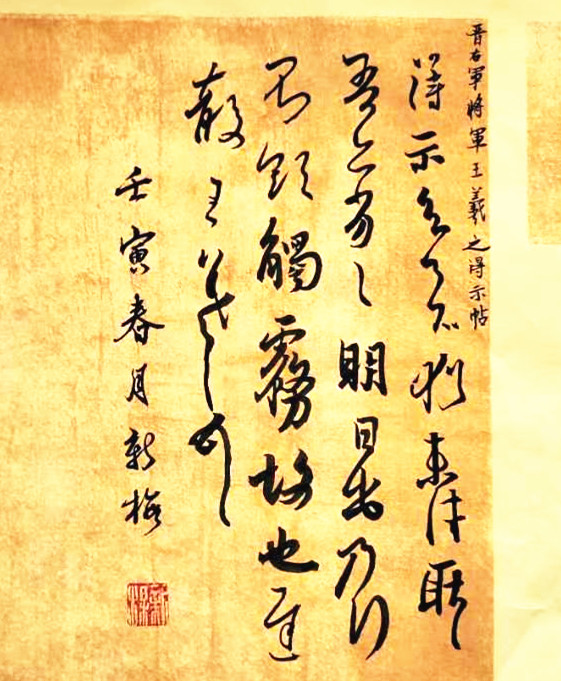 晋右軍將軍王羲之得示帖
得示知足下猶未佳耿〻
吾亦劣〻明日出乃行
不欲觸霧故也遲
散王羲之頓首
壬寅春月新梅